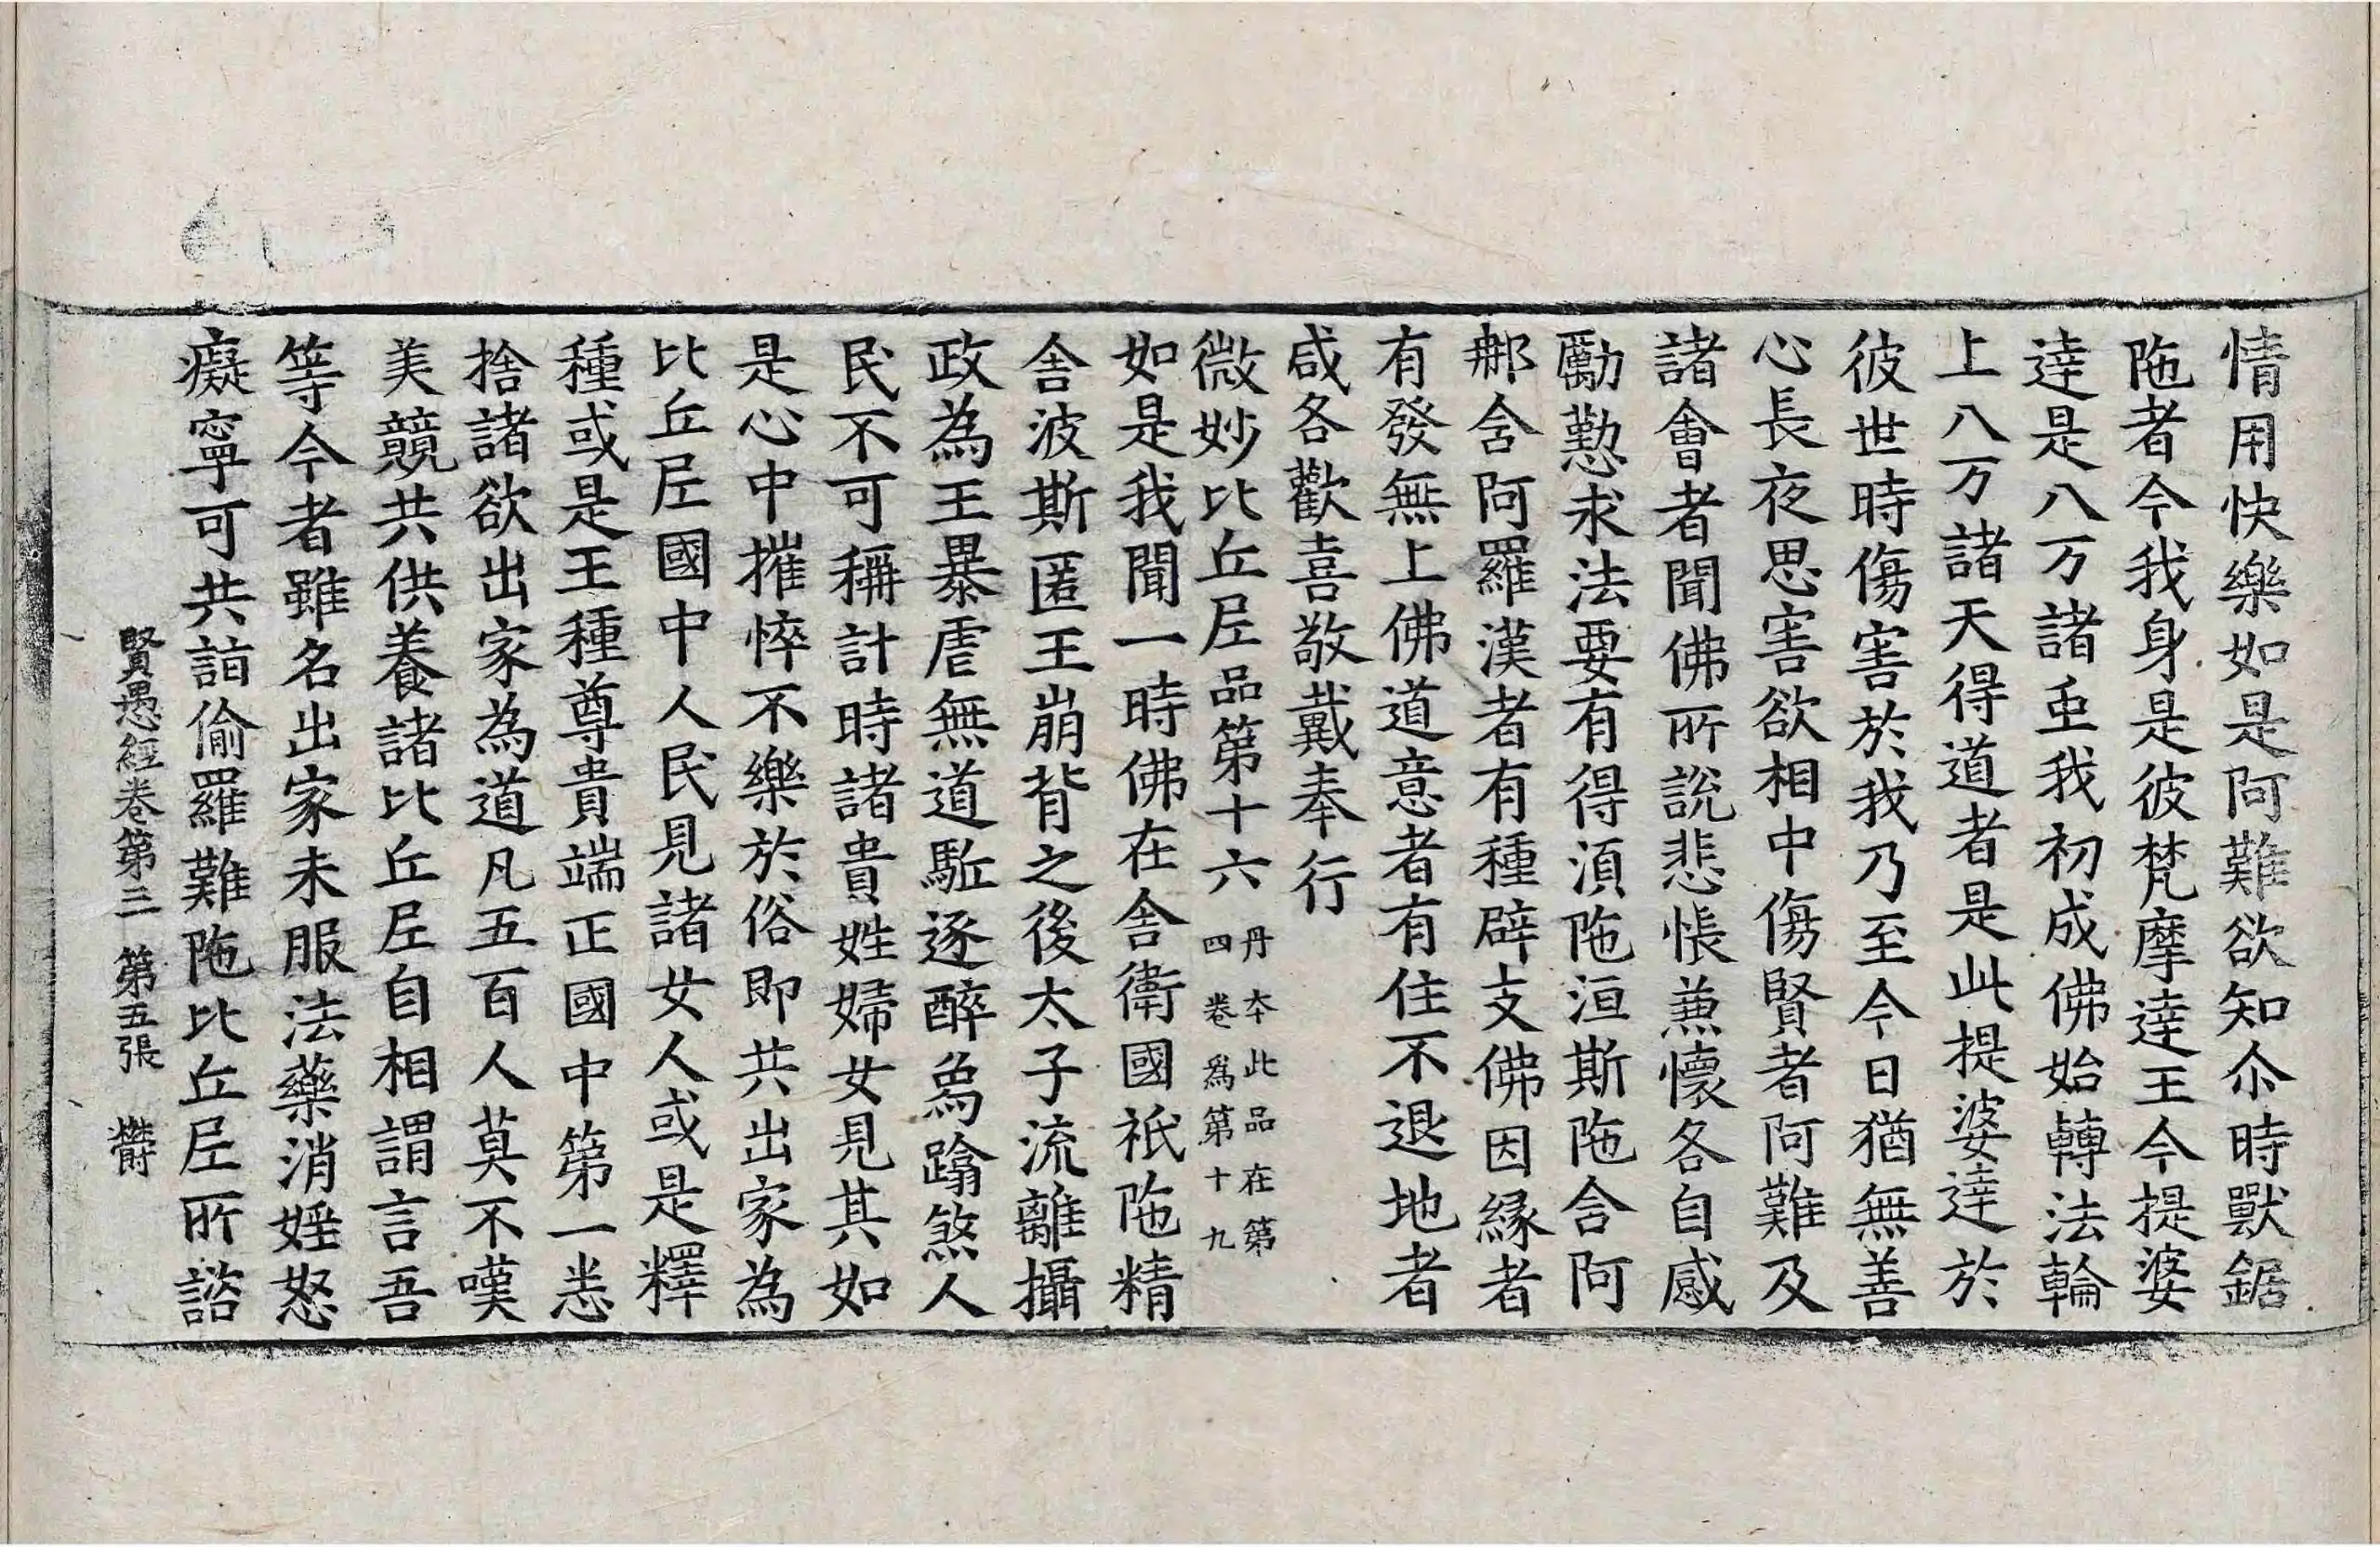 情用快樂如是阿難欲知尒時獸鋸
陁者今我身是彼梵摩達王今提婆
達是八万諸䖝我初成佛始轉法輪
上八万諸天得道者是此提婆達於
彼世時傷害於我乃至今日猶無善
心長夜思害欲相中傷賢者阿難及
諸會者聞佛所說悲悵兼懷各自感
勵懃求法要有得湏陁洹斯陁含阿
䢴含阿羅漢者有種辟支佛因緣者
有發無上佛道意者有住不退地者
咸各歡喜敬戴奉行
微妙比丘尼品第十六 丹本此品在第四卷爲第十九
如是我聞一時佛在舍衛國祇陁精
舍波斯匿王崩背之後太子流離攝
政為王暴虐無道駈逐醉鳥蹹煞人
民不可稱計時諸貴姓婦女見其如
是心中摧悴不樂於俗即共出家為
比丘尼國中人民見諸女人或是釋
種或是王種尊貴端正國中第一悉
捨諸欲出家為道凡五百人莫不嘆
美競共供養諸比丘尼自相謂言吾
等今者雖名出家未服法藥消婬怒
癡寧可共詣偷羅難陁比丘尼所諮
賢愚經卷第三 第五張 欝